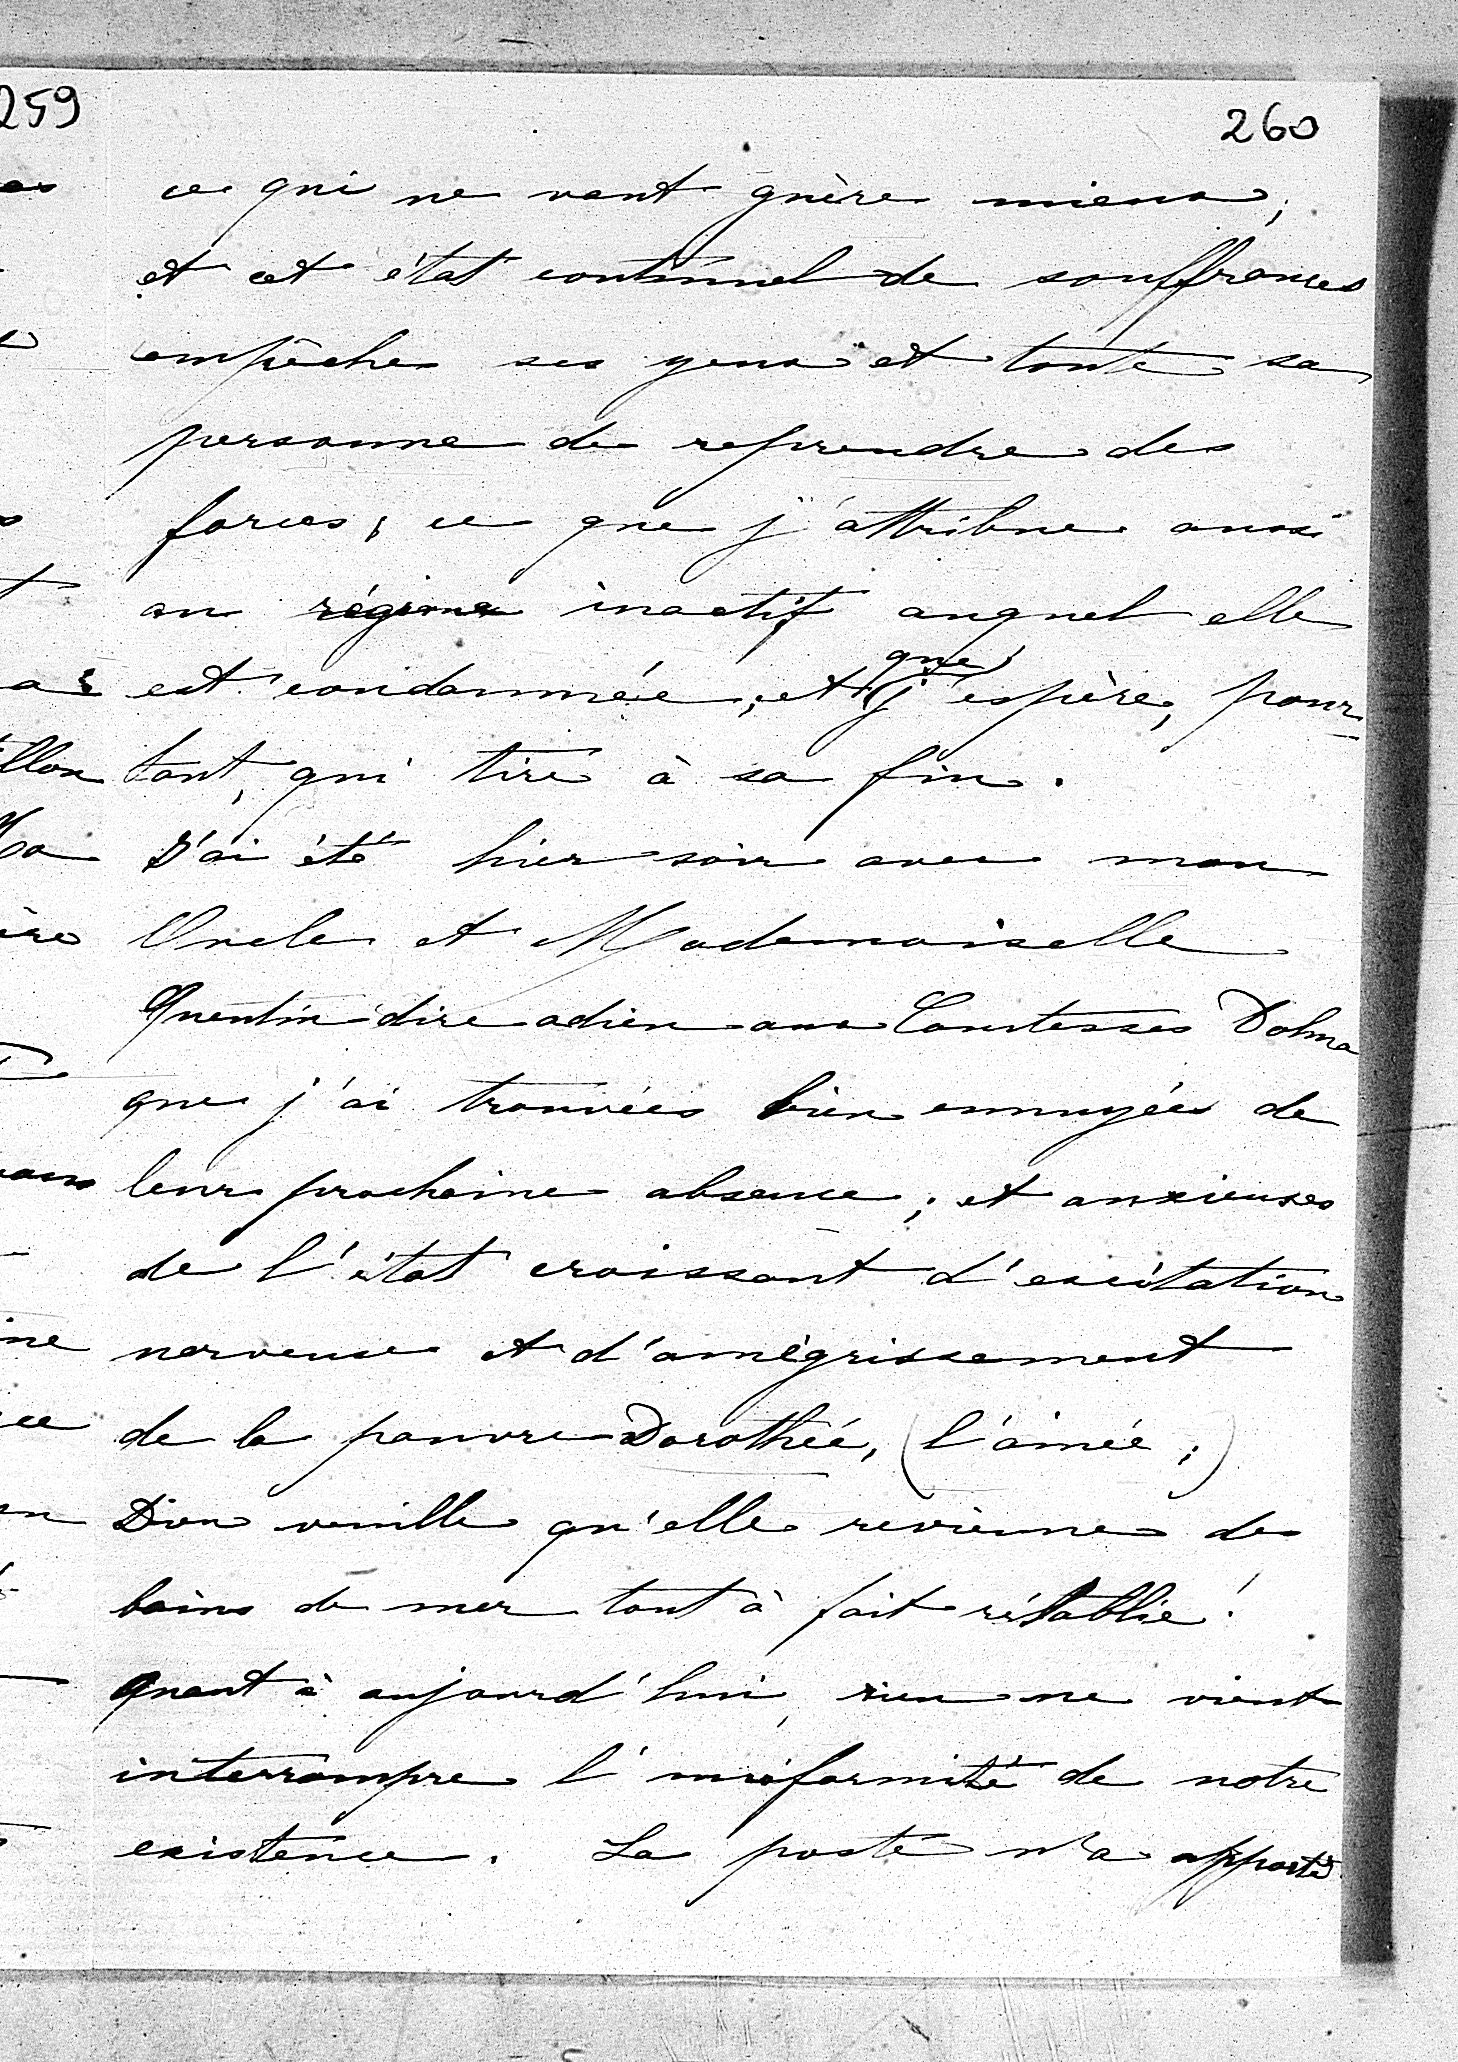 259
260
ce qui ne vaut guère mieux;
et cet état continuel de souffrances
empêche ses yeux et toute sa
personne de reprendre des
forces; ce que j'attribue aussi
au régime inactif auquel elle
est condamnée, et que j'espère, pour-
tant, qui tire à sa fin.
J'ai été hier soir avec mon
Oncle et Mademoiselle
Quentin dire adieu aux Comtesses Dohna
que j'ai trouvées bien ennuyées de
leur prochaine absence; et anxieuses
de l'état croissant d'excitation
nerveuse et d'amégrissement
de la pauvre Dorothée, (l'ainée;)
Dieu veuille qu'elle revienne des
bains de mer tout à fait rétablie!
Quant à aujourd'hui, rien ne vient
interrompre l'uniformité de notre
existence. La poste n'a apporté